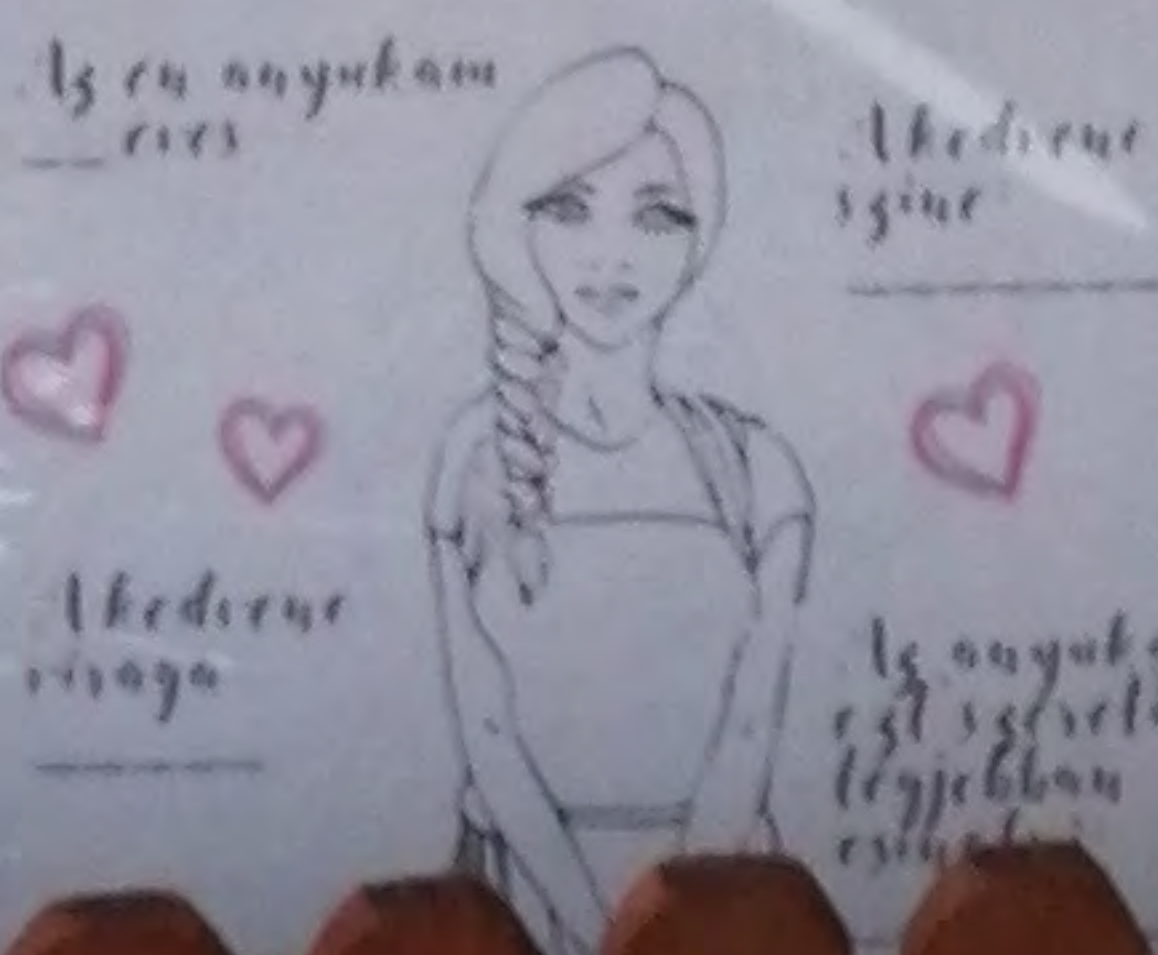 Az én anyukám
__ éves
A kedvenc
színe
A kedvenc
virága
Az anyuk
ezt szeret
legjobban